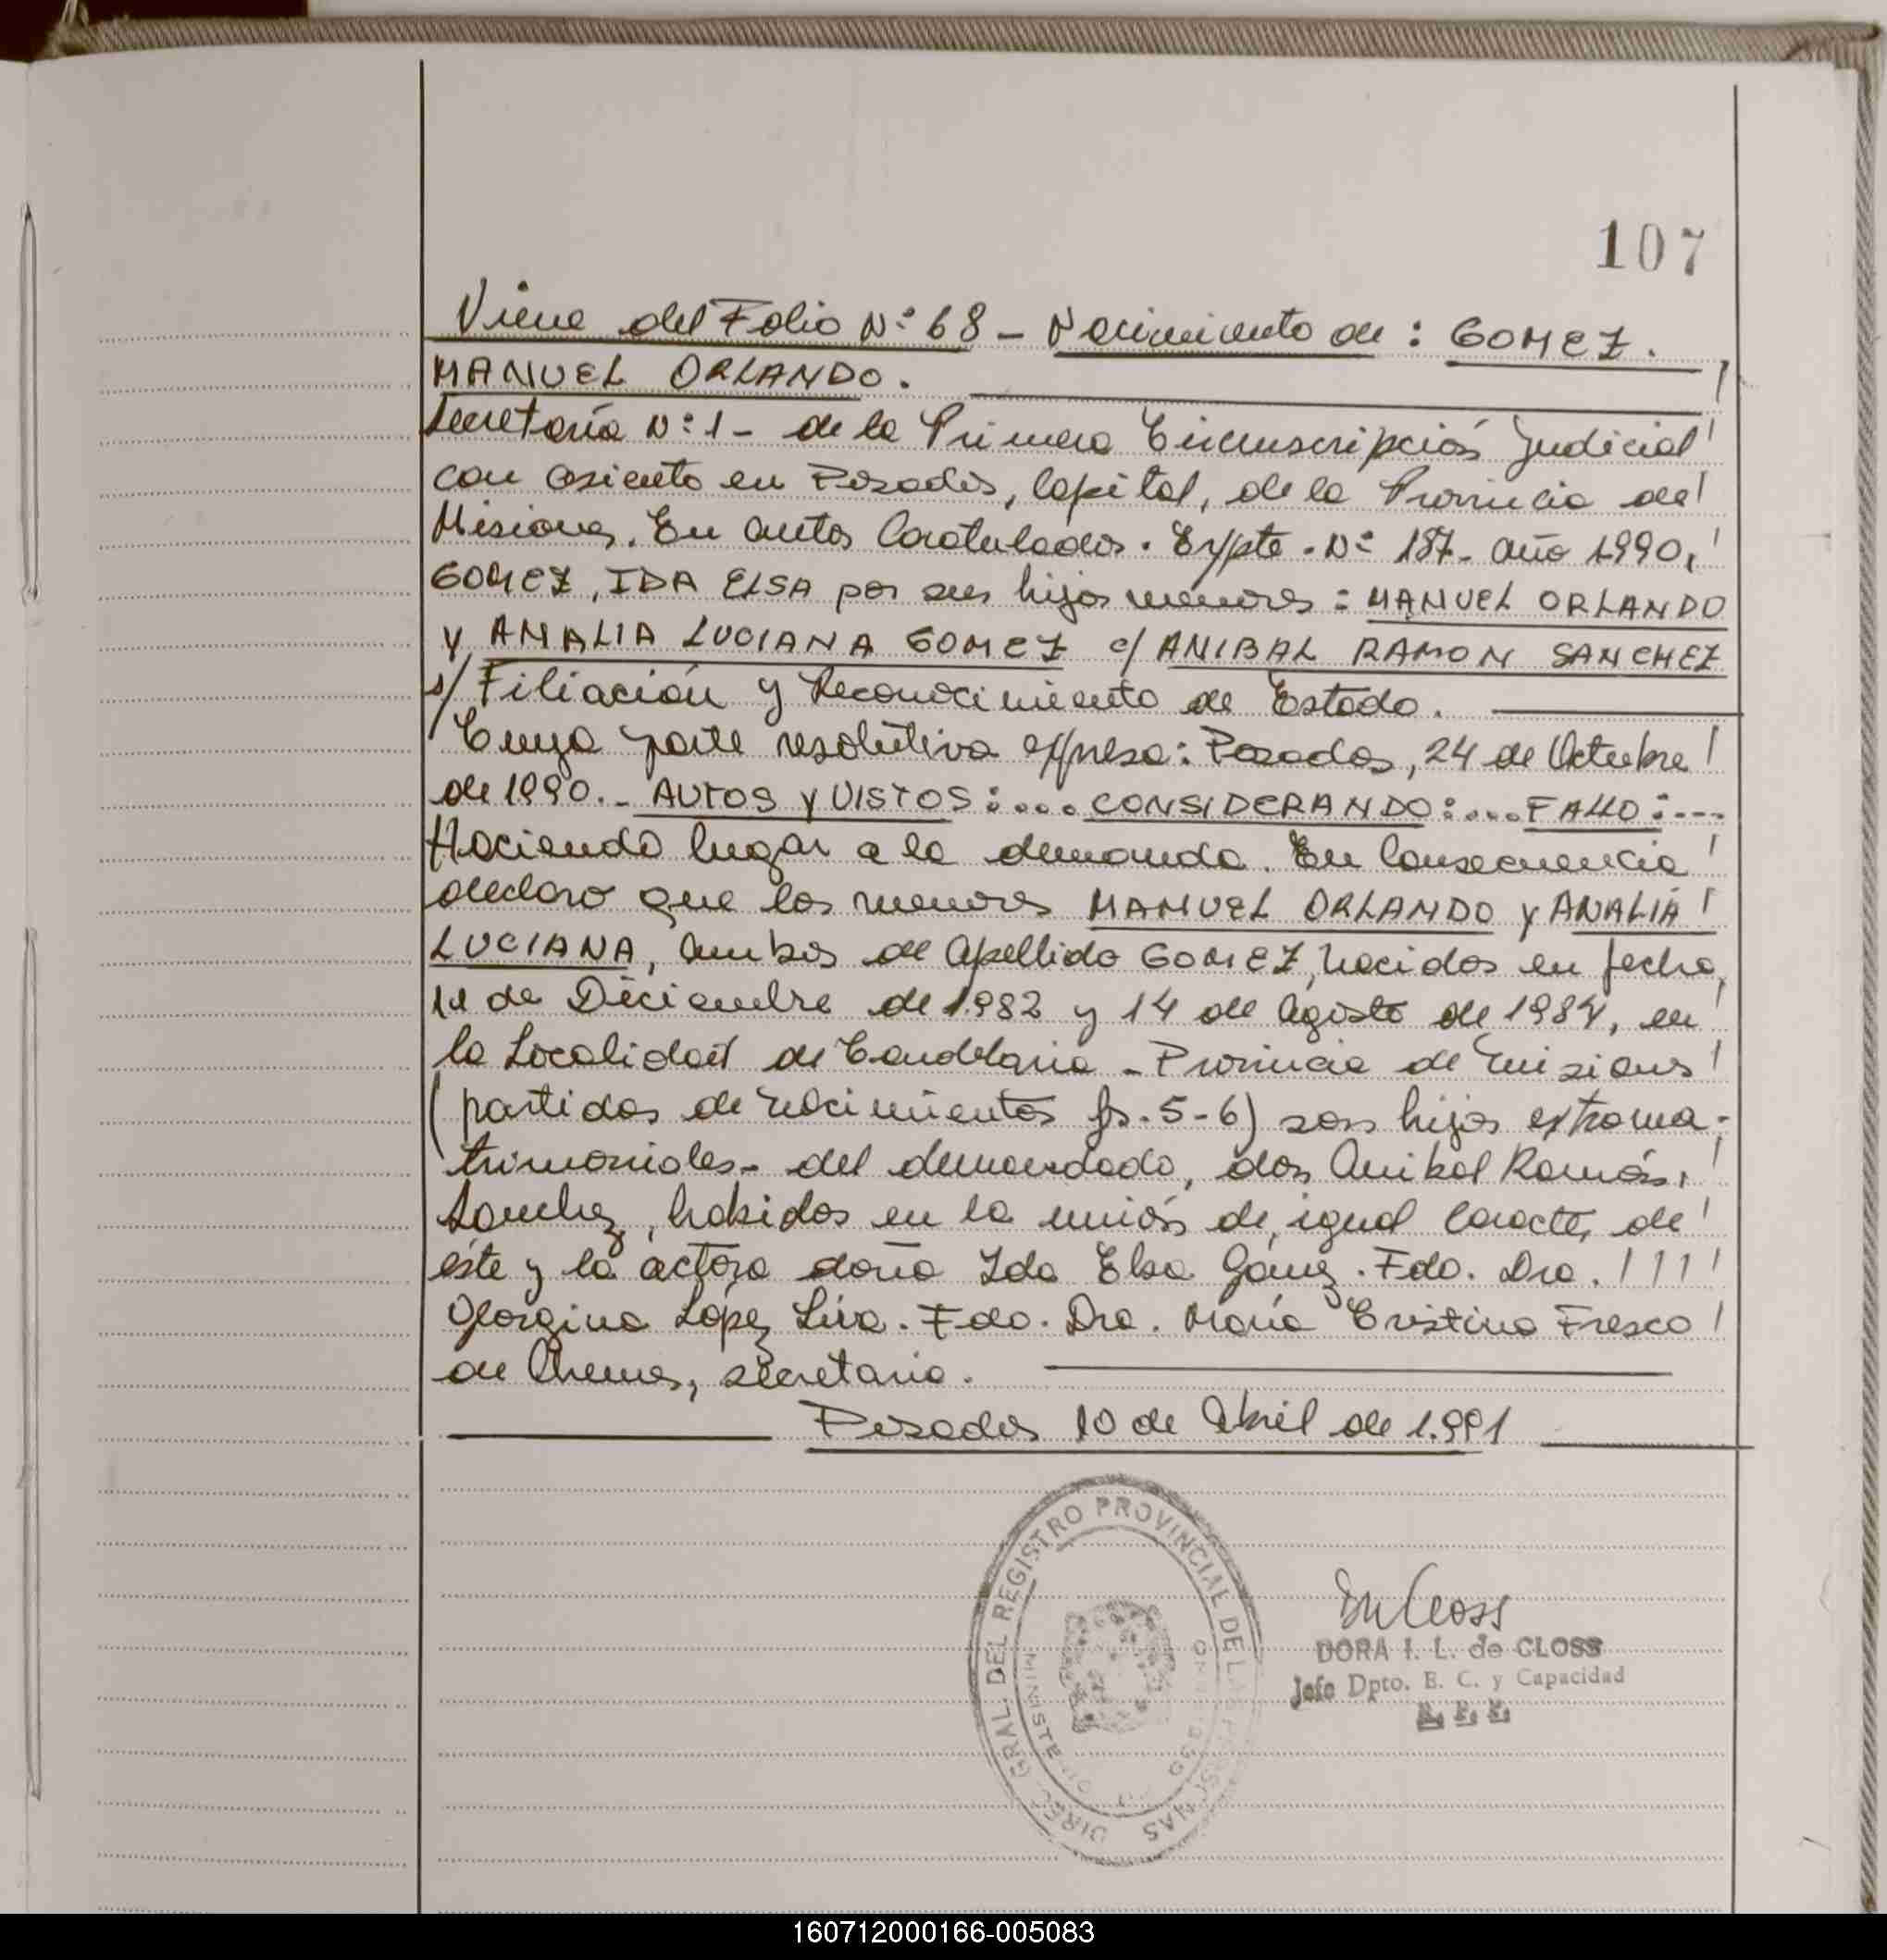 107
Viene del Folio N° 68 - Nacimiento de: GOMEZ.
MANUEL ORLANDO.
Secretaría N° 1 - de la Primera Circunscripción Judicial
con asiento en Posadas, Capital, de la Provincia de
Misiones. En autos Caratulados. Expte. N° 187- año 1990,
GOMEZ, IDA ELSA por sus hijos menores: MANUEL ORLANDO
Y AMALIA LUCIANA GOMEZ c/ ANIBAL RAMON SANCHEZ
s/ Filiación y Reconocimiento de Estado.
Cuya parte resolutiva expresa: Posadas, 24 de Octubre
de 1990.- AUTOS Y VISTOS:... CONSIDERANDO:... FALLO:---
Haciendo lugar a la demanda. En Consecuencia
declaro que los menores MANUEL ORLANDO y ANALIA
LUCIANA, ambos de apellido GOMEZ, nacidos en fecha,
de Diciembre de 1.982 y 14 de Agosto de 1984, en
la Localidad de Candelaria - Provincia de Misiones
(partidas de nacimientos fs. 5-6) son hijos extrama-
trimoniales- del demandado, don Anibal Ramón,
Sanchez, habidos en la unión de igual caracter, de
éste y la actora doña Ida Elsa Gómez. Fdo. Dra.
Georgina López Liva. Fdo. Dra. María Cristina Fresco
de, secretaria.
Posadas 10 de Abril de 1.991
DIREC. GRAL. DEL REGISTRO PROVINCIAL DE LAS PERSONAS
DORA I. L. de CLOSS
Jefe Dpto. E. C. y Capacidad